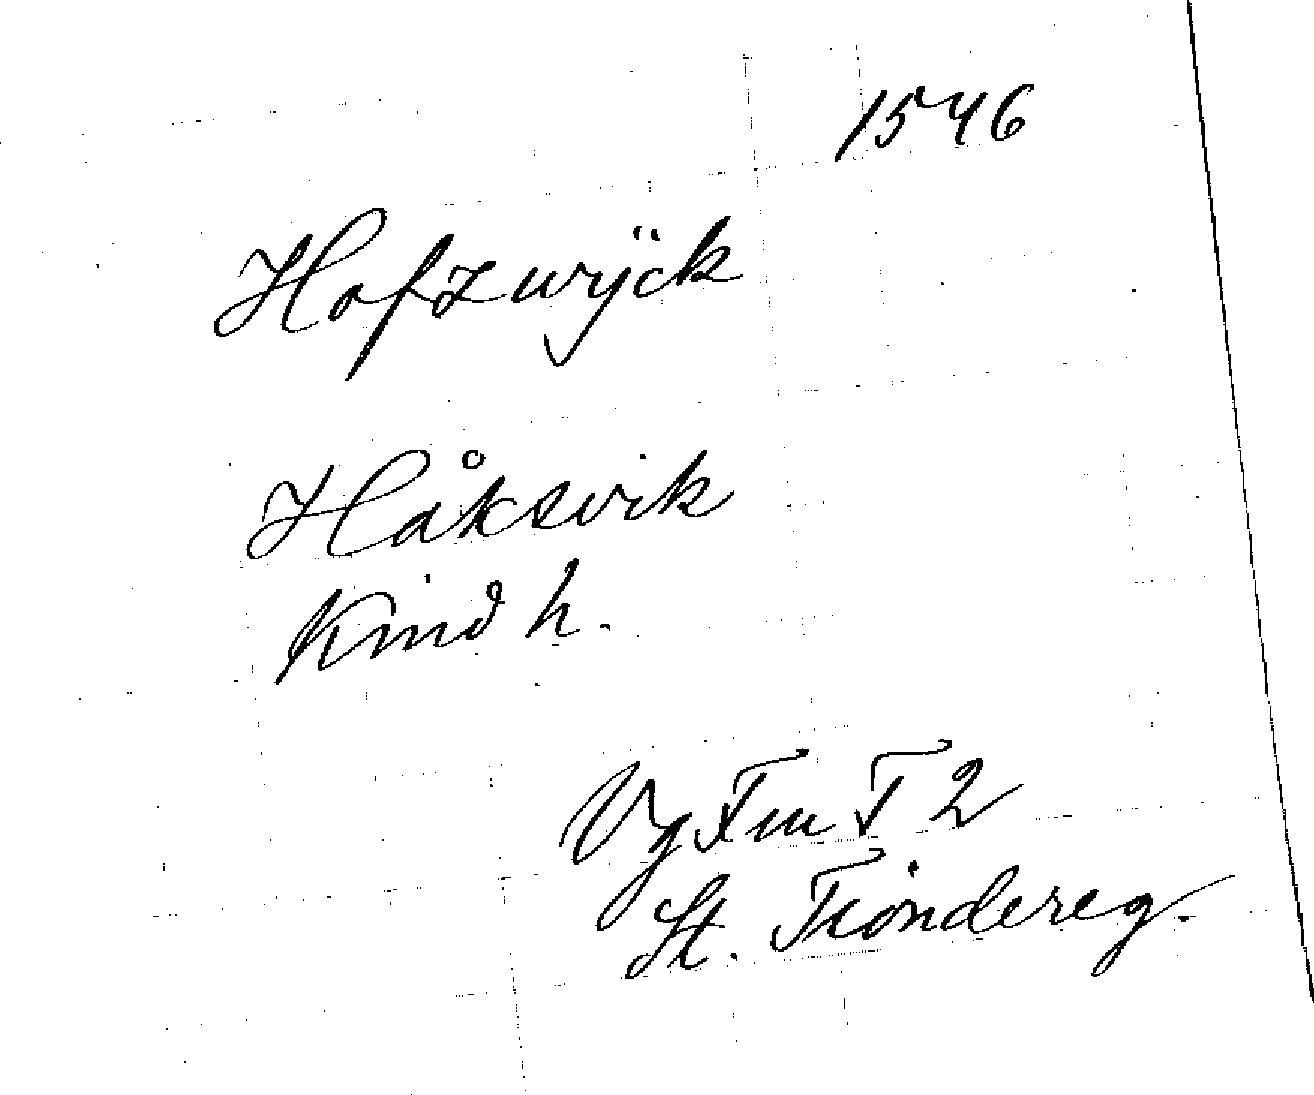 1546
Hofzwÿck
Håksvik
Kind h.
Vg Fm T 2
St. Tiöndereg.